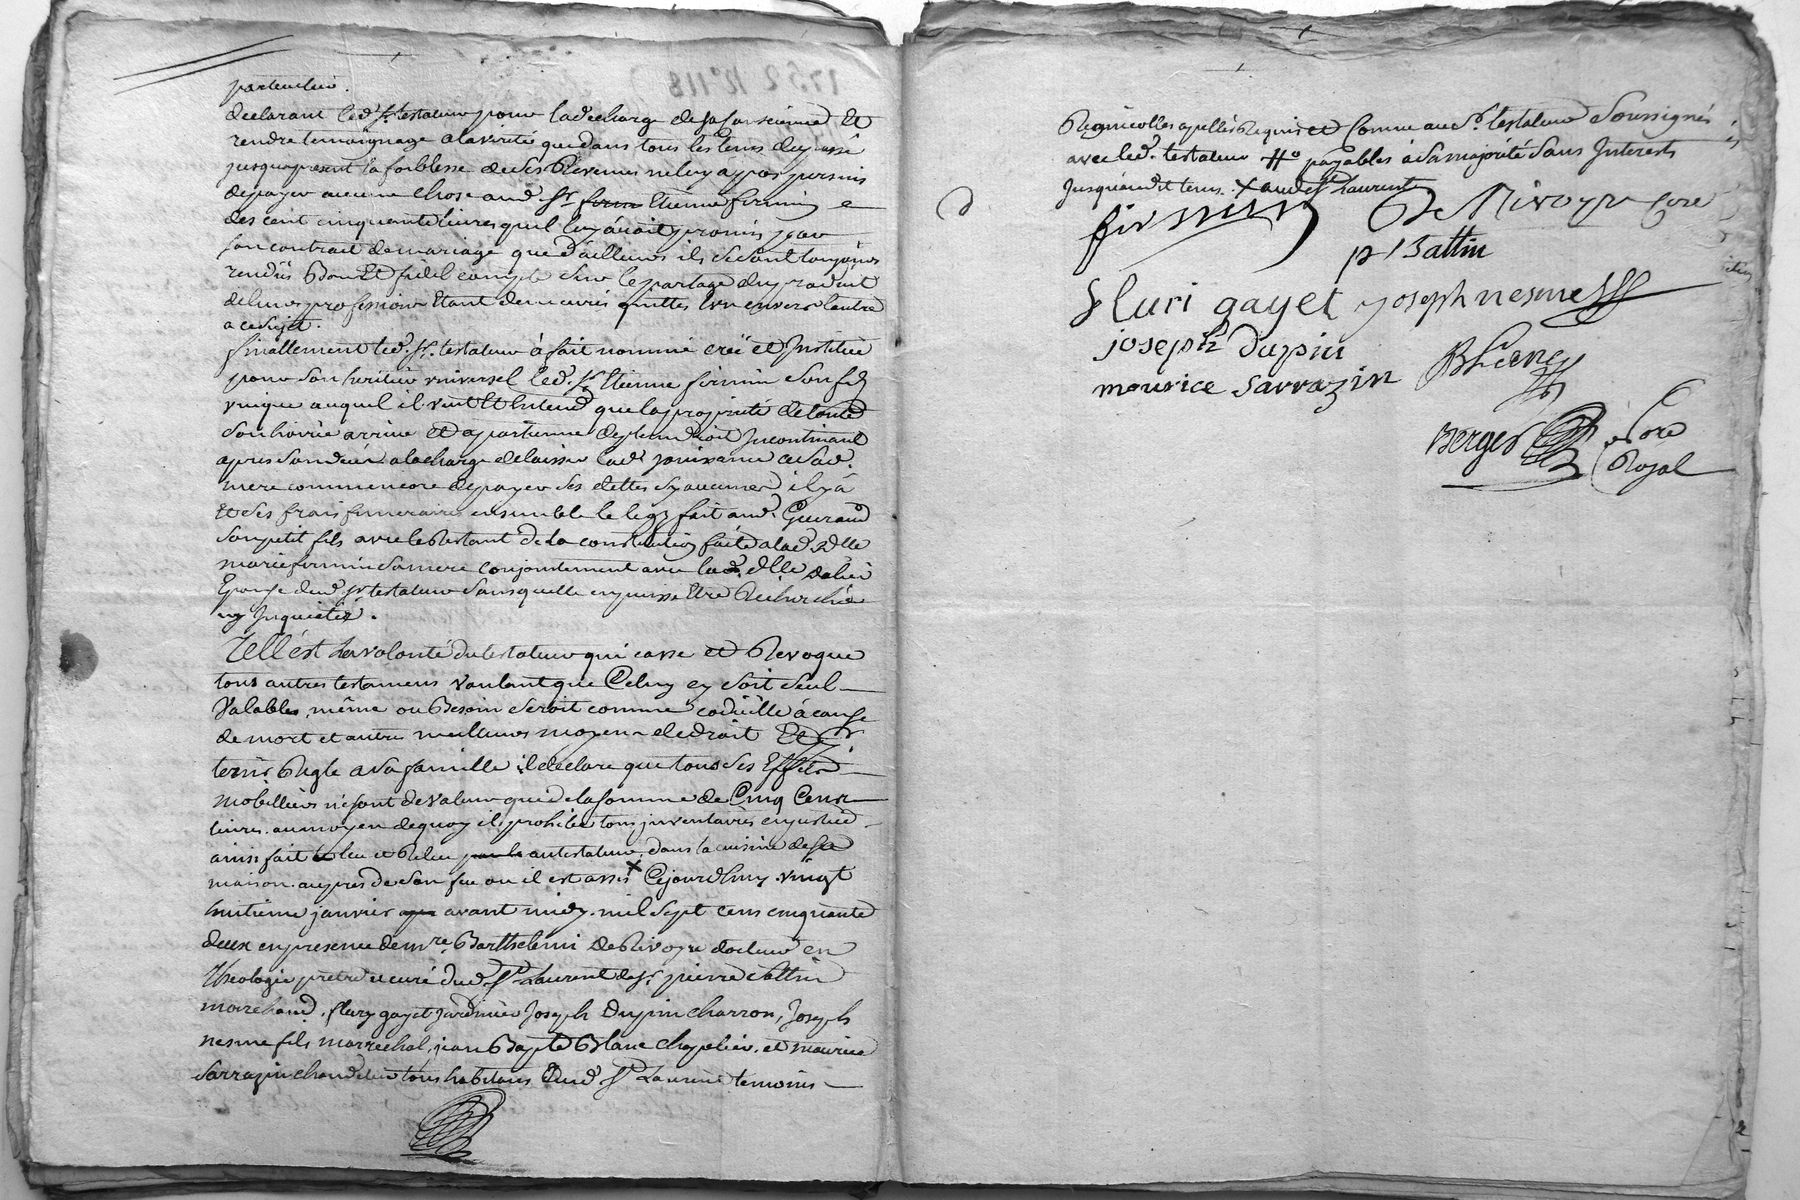 particulier.
declarant led. Sr. testateur pour la decharge de sa conscience Et
rendre temoignage a la verité que dans tous les tems du passé
jusqu'apresent la foiblesse de ses Revenus ne luy à pas permis
de payer aucune chose aud. Sr. Etienne firmin
des cent cinquante livres qu'il luy àvoit promis par
son contrait de mariage que d'ailleurs ils se sont toujours
rendus Bon Et fidel compte sur le partage du produit
de leurs profession Etant demeurés quittes L'un envers l'autre
a ce sujet.
finallement led. Sr. testateur à fait nommé creé et Institué
pour son heritier universel led. Sr. Etienne firmin son fils
unique auquel il veut Et Entend que la proprieté de toute
son hoirie arrive Et apartienne de plein droit Incontinant
apres son decés a la charge de laisser lad. jouissance a sad.
mere comm'encore de payer ses dettes sy aucunes il y à
Et ses frais funeraires ensemble le legs fait aud. Guiraud
son petit fils avec le Restant de La constitution faite a lad. Dlle
marie firmin sa mere conjointement avec lad. dlle
Epouse dud. Sr. testateur sans quelle en puisse Etre Recherchée
ny Inquietée.
Telle est La volonté du testateur qui casse et Revoque
tous autres testamens voulant que Celuy cy soit seul
Valable, même ou Besoin seroit comme codicille à cause
de mort et autre meilleurs moyen de droit Et
tenir Regle a sa famille il declare que tous ses Effets
mobilliers n'e sont de valeur que de la somme de Cinq Cens
livres. au moyen de quoy il prohibe tous inventaires en justice
ainsi fait leu et Releu au testateur, dans la cuisine de sa
maison. aupres de son feu ou il est assis X Cejourd'huy vingt
huitieme janvier avant midy. mil sept cens cinquante
deux en presence de mre. Barthelemi De Rivoyre docteur en
theologie pretre et curé dud. St. Laurent de Sr. pierre Battin
marchand, fleury gayet jardinier Joseph Dupin charron, Joseph
nesme fils marrechal, jean Bapte Blanc chapelier, et maurice
Sarrazin chandelier tous habitans dud. St. Laurent temoins
Regnicolles apellés Requis et Connu aud. Sr. testateur Soussignés
avec led. testateur # payables à sa majorité Sans Interests
Jusqu'audit tems. X aud. St. Laurent
firmin De Rivoyre Curé
p Battin
fluri gayet joseph nesme
joseph dupin
B Blanc
maurice sarrazin
Berger Nore
Royal